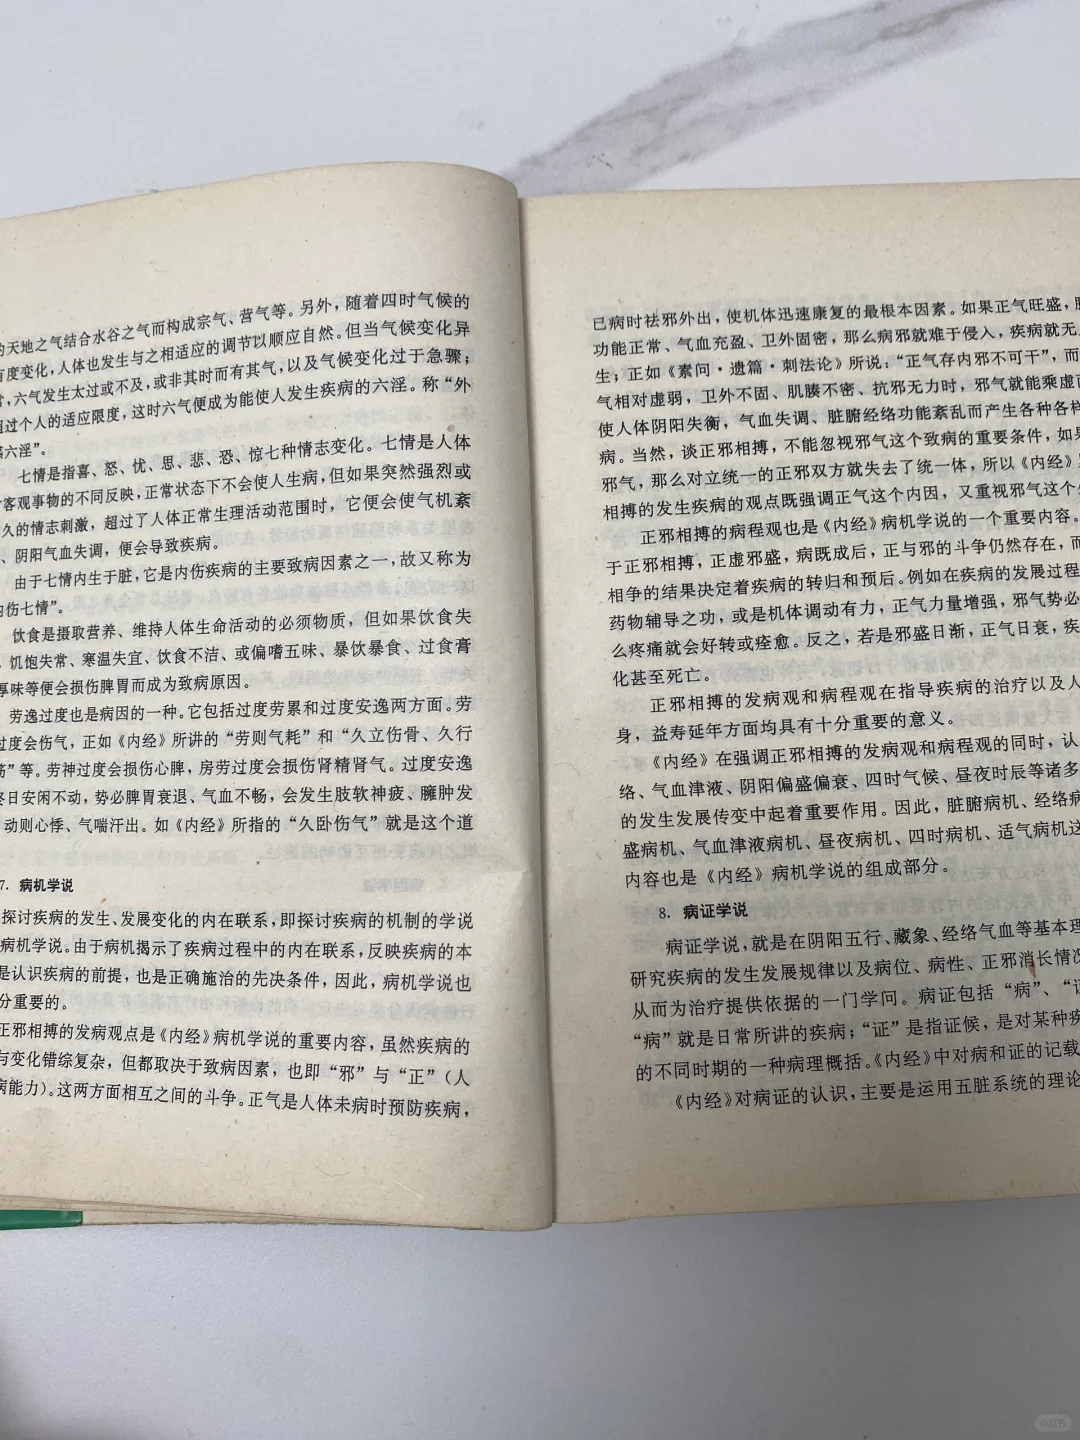 的天地之气结合水谷之气而构成宗气、营气等。另外，随着四时气候的
有度变化，人体也发生与之相适应的调节以顺应自然。但当气候变化异
，六气发生太过或不及，或非其时而有其气，以及气候变化过于急骤；
超过个人的适应限度，这时六气便成为能使人发生疾病的六淫。称“外
六淫”。
七情是指喜、怒、忧、思、悲、恐、惊七种情志变化。七情是人体
客观事物的不同反映，正常状态下不会使人生病，但如果突然强烈或
久的情志刺激，超过了人体正常生理活动范围时，它便会使气机紊
、阴阳气血失调，便会导致疾病。
由于七情内生于脏，它是内伤疾病的主要致病因素之一，故又称为
内伤七情”。
饮食是摄取营养、维持人体生命活动的必须物质，但如果饮食失
，饥饱失常、寒温失宜、饮食不洁、或偏嗜五味、暴饮暴食、过食膏
厚味等便会损伤脾胃而成为致病原因。
劳逸过度也是病因的一种。它包括过度劳累和过度安逸两方面。劳
过度会伤气，正如《内经》所讲的“劳则气耗”和“久立伤骨、久行
筋”等。劳神过度会损伤心脾，房劳过度会损伤肾精肾气。过度安逸
终日安闲不动，势必脾胃衰退、气血不畅，会发生肢软神疲、臃肿发
，动则心悸、气喘汗出。如《内经》所指的“久卧伤气”就是这个道
7. 病机学说
探讨疾病的发生、发展变化的内在联系，即探讨疾病的机制的学说
病机学说。由于病机揭示了疾病过程中的内在联系，反映疾病的本
是认识疾病的前提，也是正确施治的先决条件，因此，病机学说也
分重要的。
正邪相搏的发病观点是《内经》病机学说的重要内容，虽然疾病的
与变化错综复杂，但都取决于致病因素，也即“邪”与“正”（人
病能力）。这两方面相互之间的斗争。正气是人体未病时预防疾病，
已病时祛邪外出，使机体迅速康复的最根本因素。如果正气旺盛，
功能正常、气血充盈、卫外固密，那么病邪就难于侵入，疾病就无
生；正如《素问·遗篇·刺法论》所说：“正气存内邪不可干”，而
气相对虚弱，卫外不固、肌腠不密、抗邪无力时，邪气就能乘虚
使人体阴阳失衡，气血失调、脏腑经络功能紊乱而产生各种各样
病。当然，谈正邪相搏，不能忽视邪气这个致病的重要条件，如果
邪气，那么对立统一的正邪双方就失去了统一体，所以《内经》
相搏的发生疾病的观点既强调正气这个内因，又重视邪气这个
正邪相搏的病程观也是《内经》病机学说的一个重要内容。
于正邪相搏，正虚邪盛，病既成后，正与邪的斗争仍然存在，而
相争的结果决定着疾病的转归和预后。例如在疾病的发展过程
药物辅导之功，或是机体调动有力，正气力量增强，邪气势必
么疼痛就会好转或痊愈。反之，若是邪盛日渐，正气日衰，疾
化甚至死亡。
正邪相搏的发病观和病程观在指导疾病的治疗以及人
身，益寿延年方面均具有十分重要的意义。
《内经》在强调正邪相搏的发病观和病程观的同时，认
络、气血津液、阴阳偏盛偏衰、四时气候、昼夜时辰等诸多
的发生发展传变中起着重要作用。因此，脏腑病机、经络病
盛病机、气血津液病机、昼夜病机、四时病机、适气病机这
内容也是《内经》病机学说的组成部分。
8. 病证学说
病证学说，就是在阴阳五行、藏象、经络气血等基本理
研究疾病的发生发展规律以及病位、病性、正邪消长情况
从而为治疗提供依据的一门学问。病证包括“病”、“证
“病”就是日常所讲的疾病；“证”是指证候，是对某种疾
的不同时期的一种病理概括。《内经》中对病和证的记载
《内经》对病证的认识，主要是运用五脏系统的理论
小红书